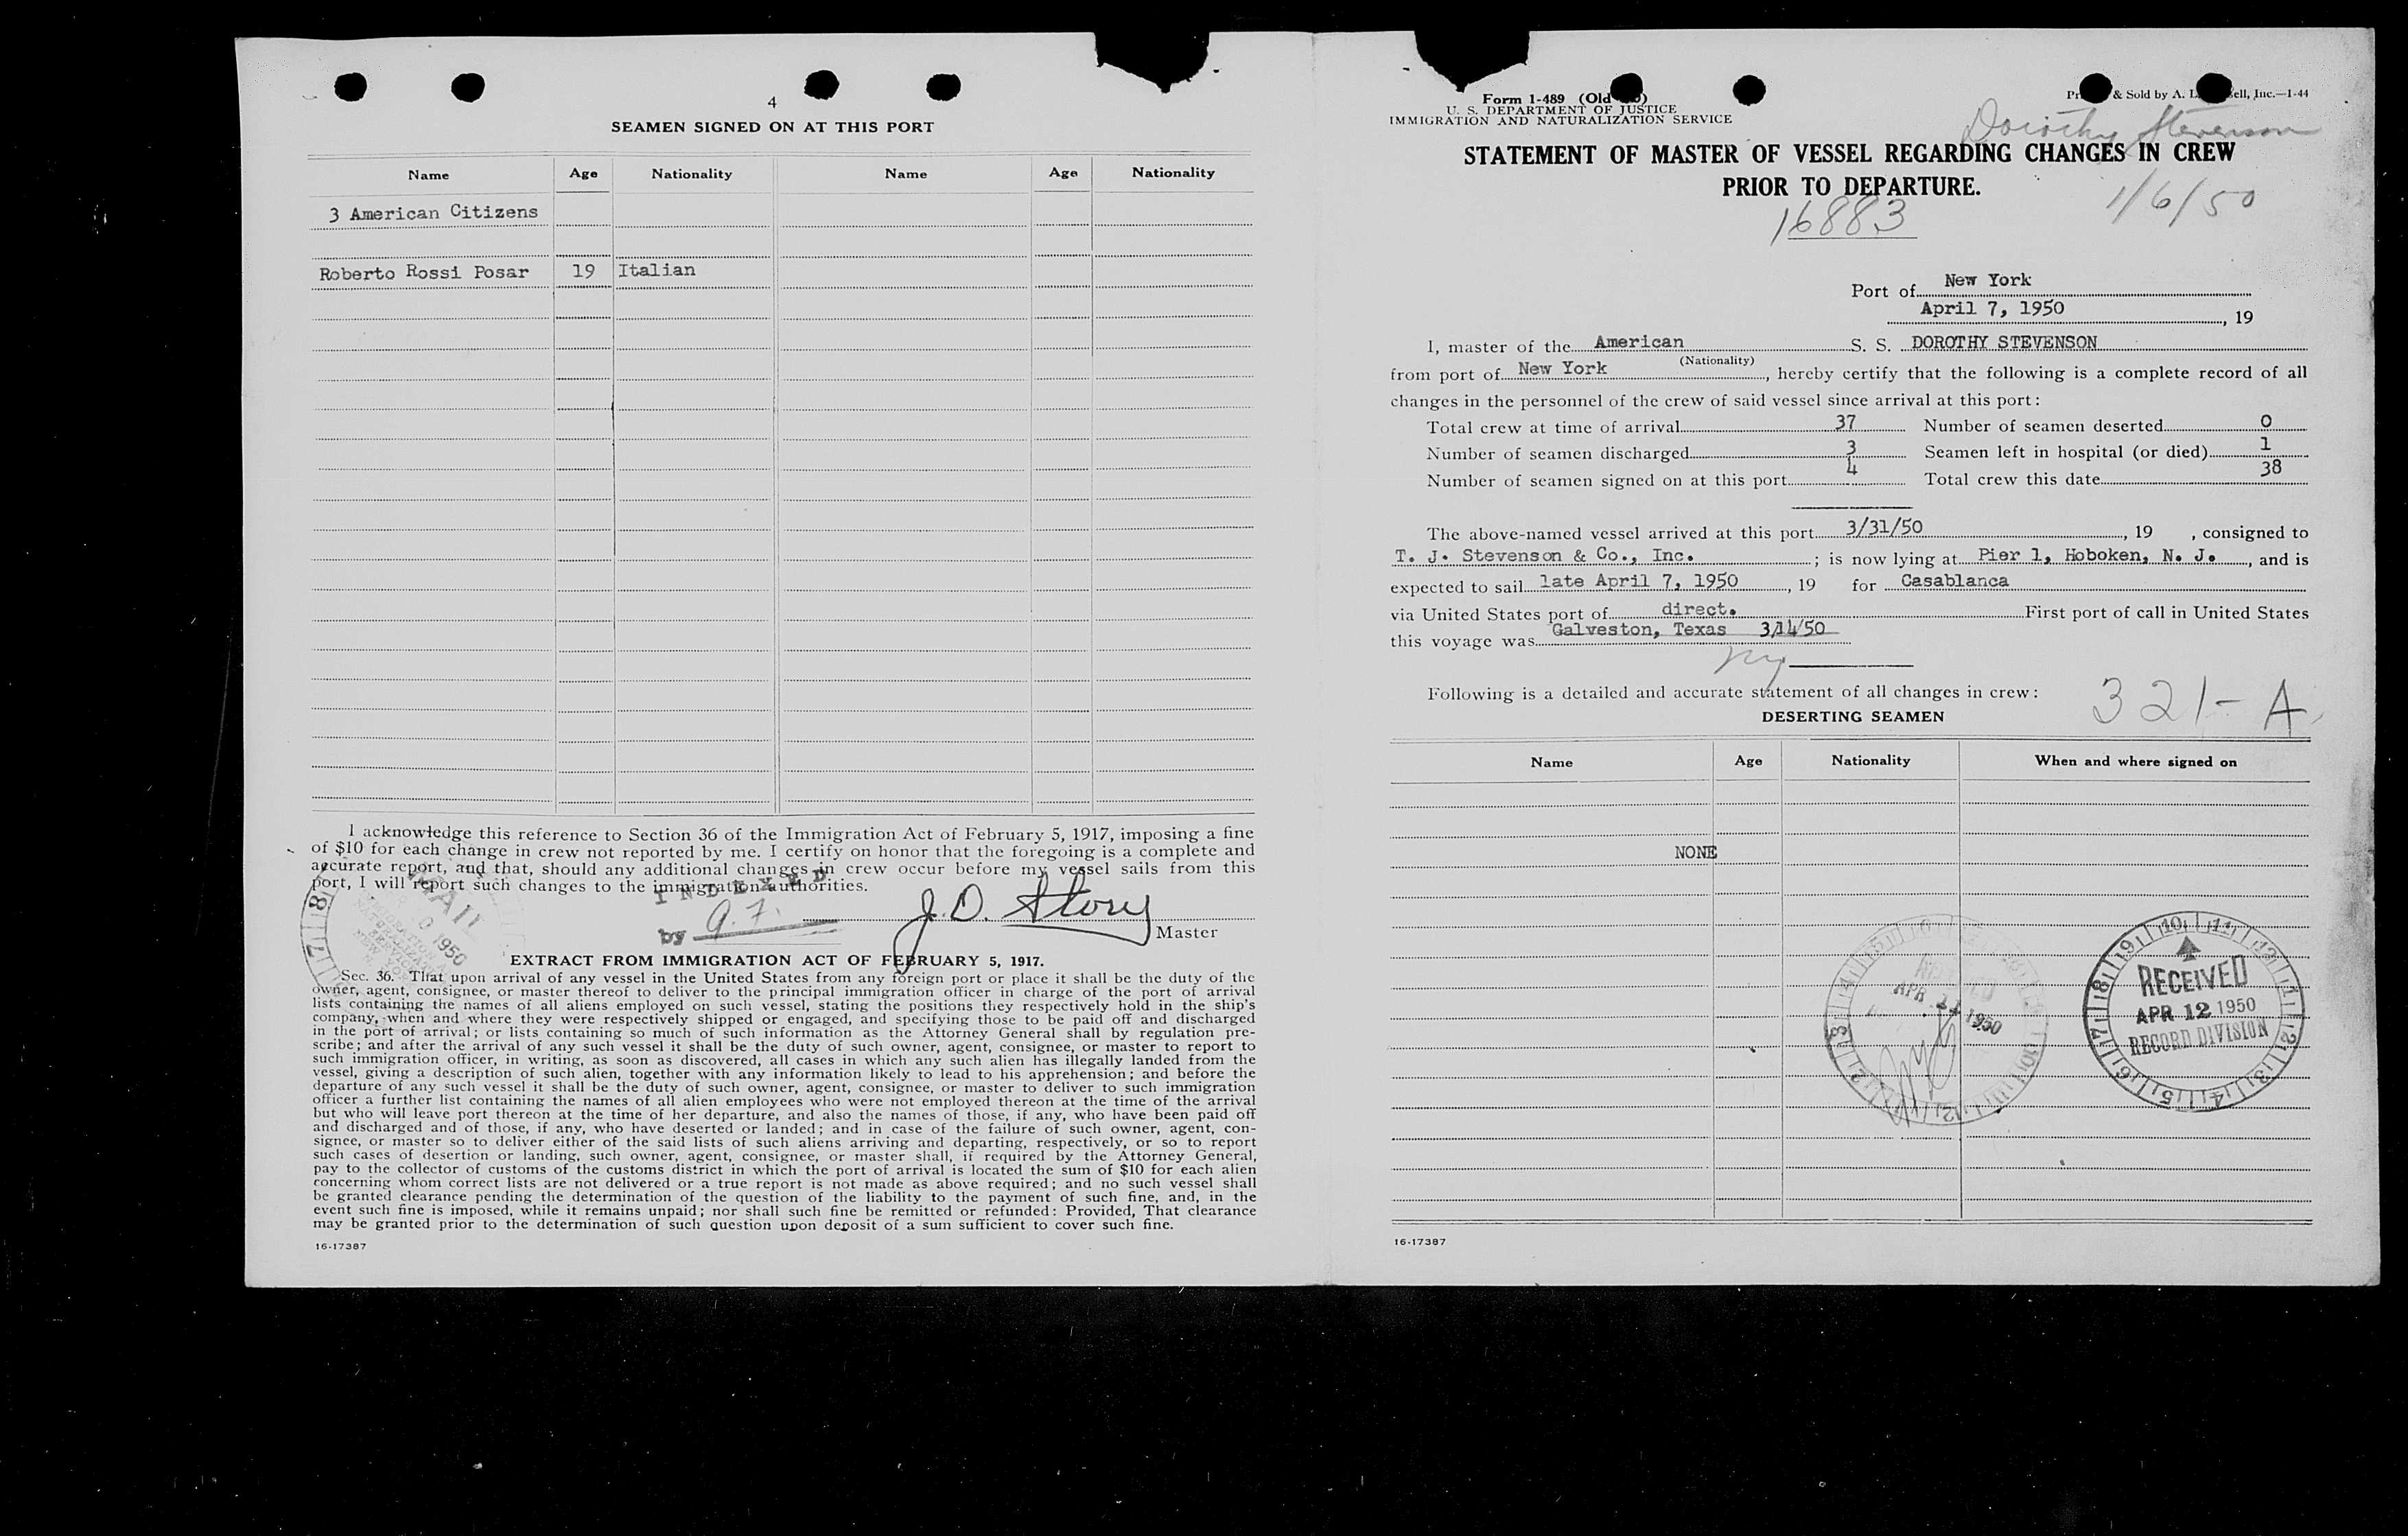 4
SEAMEN SIGNED ON AT THIS PORT
Name Age Nationality Name Age Nationality
3 American Citizens
Roberto Rossi Posar 19 Italian
I acknowledge this reference to Section 36 of the Immigration Act of February 5, 1917, imposing a fine
of $10 for each change in crew not reported by me. I certify on honor that the foregoing is a complete and
accurate report, and that, should any additional changes in crew occur before my vessel sails from this
port, I will report such changes to the immigration authorities.
INDEXED
by
J. D. Story
Master
EXTRACT FROM IMMIGRATION ACT OF FEBRUARY 5, 1917.
Sec. 36. That upon arrival of any vessel in the United States from any foreign port or place it shall be the duty of the
owner, agent, consignee, or master thereof to deliver to the principal immigration officer in charge of the port of arrival
lists containing the names of all aliens employed on such vessel, stating the positions they respectively hold in the ship's
company, when and where they were respectively shipped or engaged, and specifying those to be paid off and discharged
in the port of arrival; or lists containing so much of such information as the Attorney General shall by regulation pre-
scribe; and after the arrival of any such vessel it shall be the duty of such owner, agent, consignee, or master to report to
such immigration officer, in writing, as soon as discovered, all cases in which any such alien has illegally landed from the
vessel, giving a description of such alien, together with any information likely to lead to his apprehension; and before the
departure of any such vessel it shall be the duty of such owner, agent, consignee, or master to deliver to such immigration
officer a further list containing the names of all alien employees who were not employed thereon at the time of the arrival
but who will leave port thereon at the time of her departure, and also the names of those, if any, who have been paid off
and discharged and of those, if any, who have deserted or landed; and in case of the failure of such owner, agent, con-
signee, or master so to deliver either of the said lists of such aliens arriving and departing, respectively, or so to report
such cases of desertion or landing, such owner, agent, consignee, or master shall, if required by the Attorney General,
pay to the collector of customs of the customs district in which the port of arrival is located the sum of $10 for each alien
concerning whom correct lists are not delivered or a true report is not made as above required; and no such vessel shall
be granted clearance pending the determination of the question of the liability to the payment of such fine, and, in the
event such fine is imposed, while it remains unpaid; nor shall such fine be remitted or refunded: Provided, That clearance
may be granted prior to the determination of such question upon deposit of a sum sufficient to cover such fine.
16-17387
Form 1-489 (Old
U. S. DEPARTMENT OF JUSTICE
IMMIGRATION AND NATURALIZATION SERVICE
& Sold by A. Inc.—1-44
Dorothy Stevenson
STATEMENT OF MASTER OF VESSEL REGARDING CHANGES IN CREW
PRIOR TO DEPARTURE.
16883
1/6/50
Port of New York
April 7, 1950, 19
I, master of the American S. S. DOROTHY STEVENSON
(Nationality)
from port of New York, hereby certify that the following is a complete record of all
changes in the personnel of the crew of said vessel since arrival at this port:
Total crew at time of arrival 37 Number of seamen deserted 0
Number of seamen discharged 3 Seamen left in hospital (or died) 1
Number of seamen signed on at this port 4 Total crew this date 38
The above-named vessel arrived at this port 3/31/50, 19 , consigned to
T. J. Stevenson & Co., Inc. ; is now lying at Pier 1, Hoboken, N. J., and is
expected to sail late April 7, 1950, 19 for Casablanca
via United States port of direct. First port of call in United States
this voyage was Galveston, Texas 3/14/50
Following is a detailed and accurate statement of all changes in crew:
321-A
DESERTING SEAMEN
Name Age Nationality When and where signed on
NONE
APR 1950
RECEIVED
APR 12 1950
RECORD DIVISION
16-17387